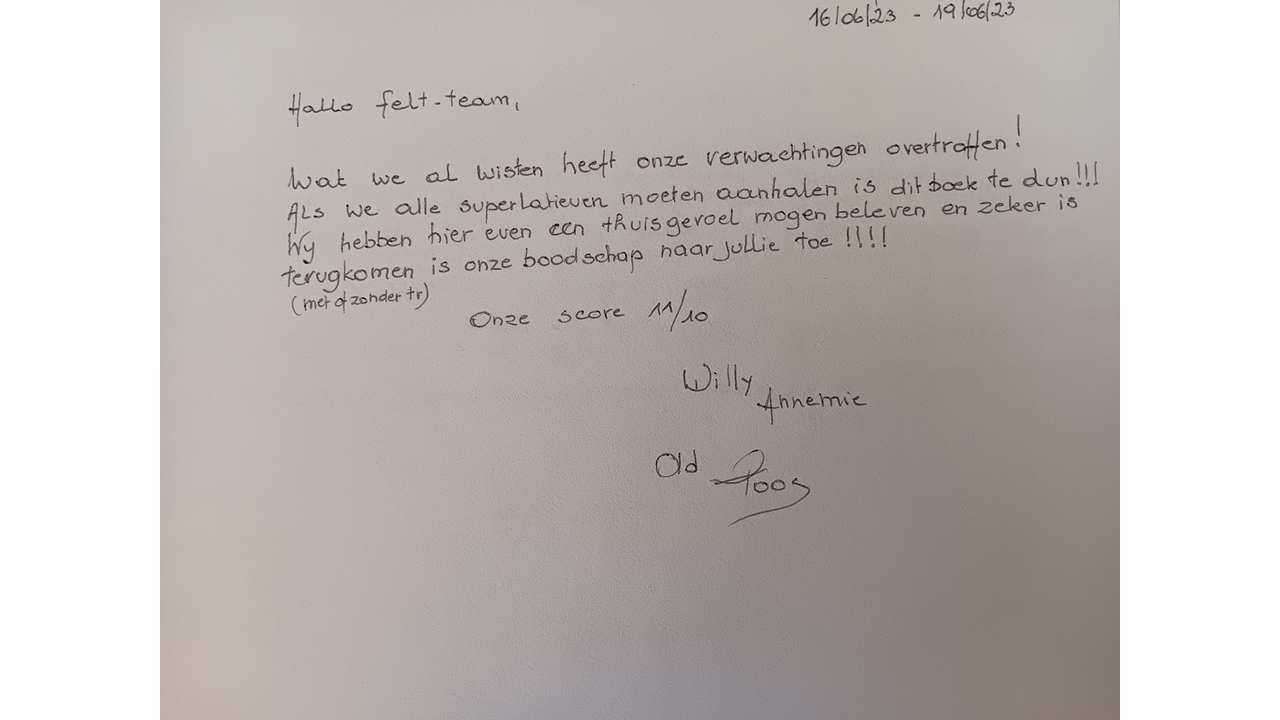 16/06/23 - 19/06/23
Hallo felt-team,
Wat we al wisten heeft onze verwachtingen overtroffen!
Als we alle superlatieven moeten aanhalen is dit boek te dun!!!
Wy hebben hier even een thuisgevoel mogen beleven en zeker is
terugkomen is onze boodschap naar jullie toe !!!!
(met of zonder tr)
Onze score 11/10
Willy
Annemie
Old